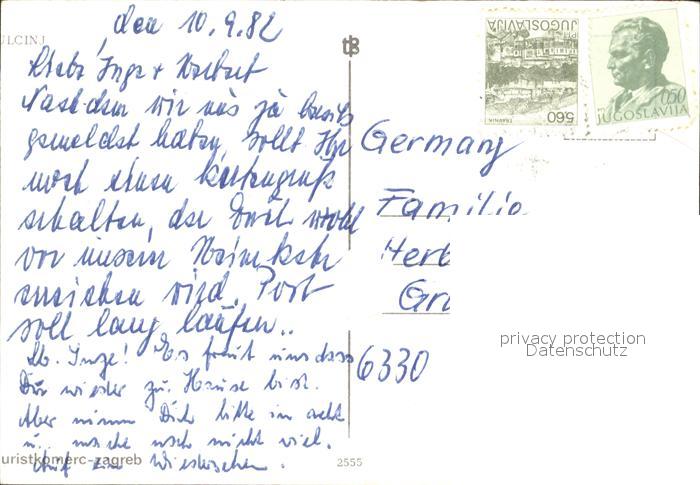 den 10.9.82
ULCINJ
Liebe Inge + Norbert
Nachdem wir uns ja bereits
gemeldet haben, sollt Ihr
noch einen Kartengruß
erhalten, der Euch wohl
vor unserer Heimkehr
erreichen wird. Post
soll lang laufen..
Lb. Inge! Es freut uns dass
Du wieder zu Hause bist.
Aber nimm Dich bitte in acht
u. mache noch nicht viel.
Auf ein Wiedersehen.
uristkomerc-zagreb
2555
JUGOSLAVIJA
TRAVNIK
5.60
0.50
JUGOSLAVIJA
Germany
Familie
Herb
Gr
6330
privacy protection
Datenschutz